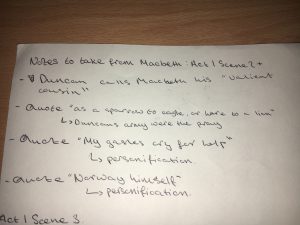 Notes to take from Macbeth: Act 1 Scene 2+
- Duncan calls Macbeth his "valient
cousin"
- Quote "as a sparrow to eagle, or hare to a lion"
↳ Duncans army were the pray
- Quote "My gashes cry for help"
↳ personification
- Quote "Norway himself"
↳ personification
Act 1 Scene 3